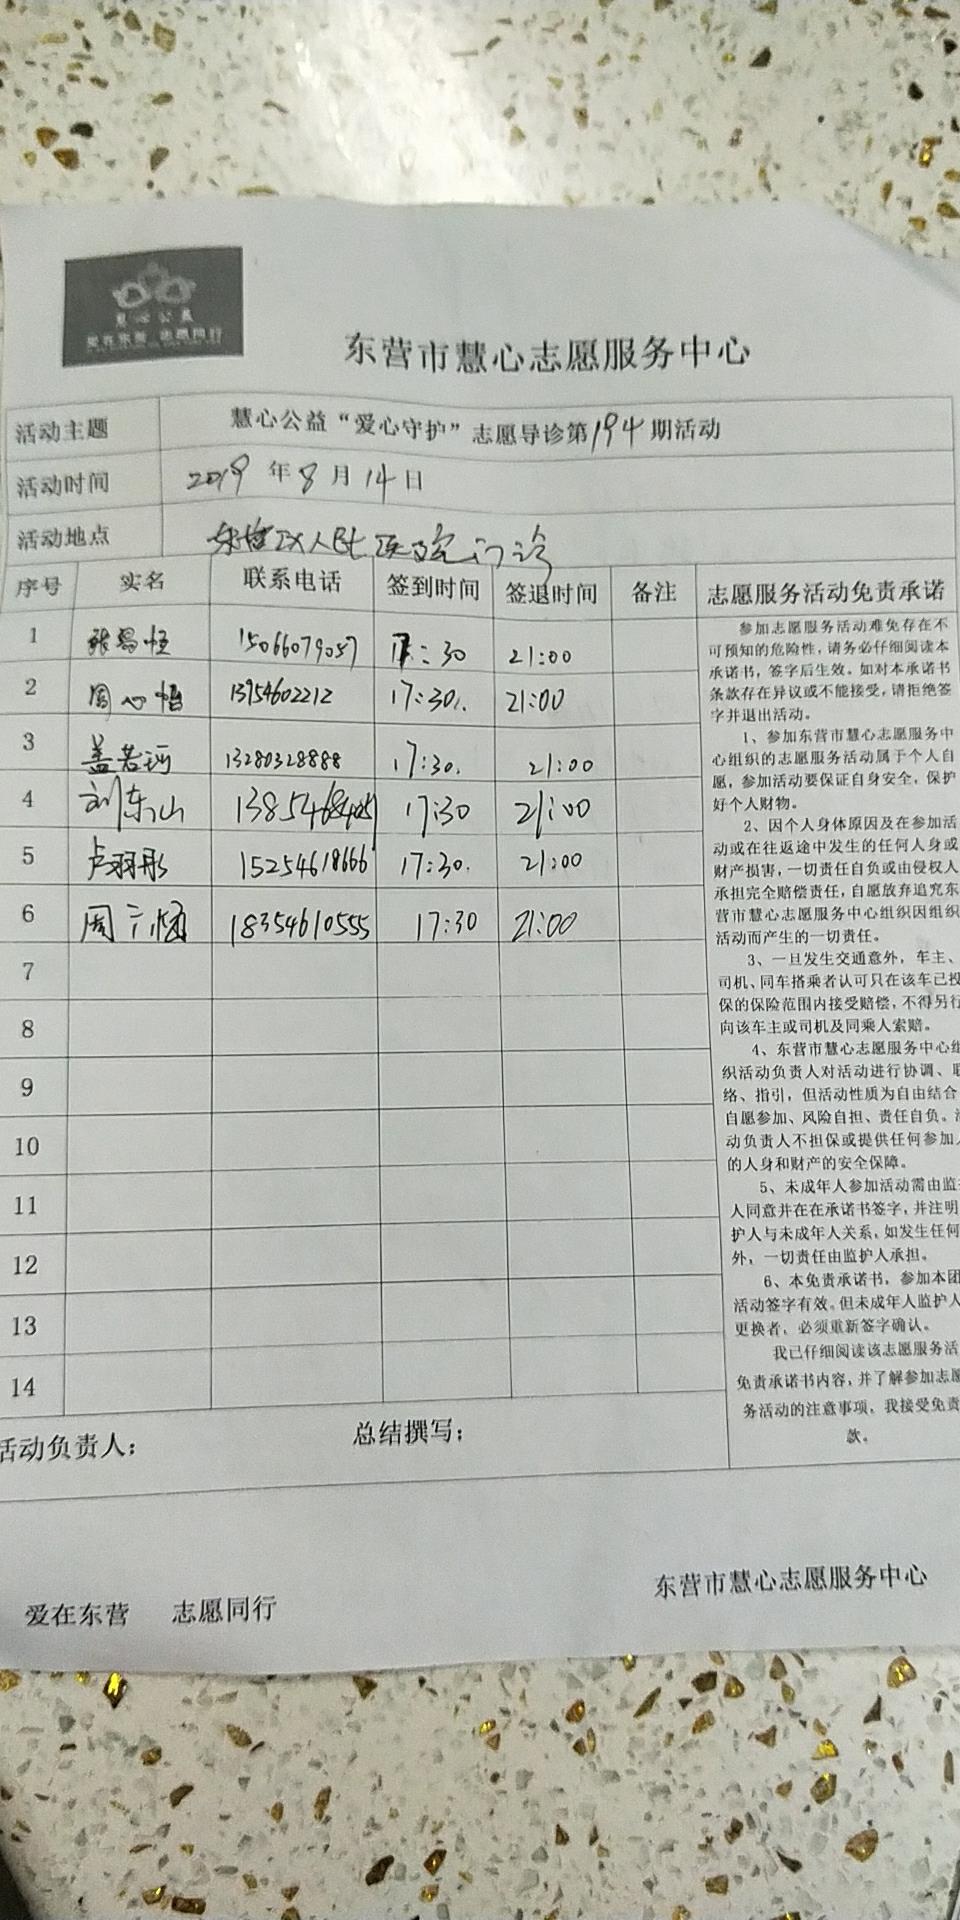 慧心公益
爱在东营 志愿同行
东营市慧心志愿服务中心
活动主题 慧心公益“爱心守护”志愿导诊第194期活动
活动时间 2019年8月14日
活动地点 东营区人民医院门诊
序号 实名 联系电话 签到时间 签退时间 备注 志愿服务活动免责承诺
1 15066079057 17:30 21:00
2 周心怡 13954602212 17:30. 21:00
3 盖若河 13280328888 17:30. 21:00
4 刘东山 17:30 21:00
5 卢羽彤 15254618666 17:30. 21:00
6 周 18354610555 17:30 21:00
7
8
9
10
11
12
13
14
参加志愿服务活动难免存在不
可预知的危险性，请务必仔细阅读本
承诺书，签字后生效。如对本承诺书
条款存在异议或不能接受，请拒绝签
字并退出活动。
1、参加东营市慧心志愿服务中
心组织的志愿服务活动属于个人自
愿，参加活动要保证自身安全，保护
好个人财物。
2、因个人身体原因及在参加活
动或在往返途中发生的任何人身或
财产损害，一切责任自负或由侵权人
承担完全赔偿责任，自愿放弃追究东
营市慧心志愿服务中心组织因组织
活动而产生的一切责任。
3、一旦发生交通意外，车主、
司机、同车搭乘者认可只在该车已投
保的保险范围内接受赔偿，不得另行
向该车主或司机及同乘人索赔。
4、东营市慧心志愿服务中心组
织活动负责人对活动进行协调、联
络、指引，但活动性质为自由结合
自愿参加、风险自担、责任自负。活
动负责人不担保或提供任何参加人
的人身和财产的安全保障。
5、未成年人参加活动需由监
人同意并在在承诺书签字，并注明
护人与未成年人关系，如发生任何
外，一切责任由监护人承担。
6、本免责承诺书，参加本团
活动签字有效。但未成年人监护人
更换者，必须重新签字确认。
我已仔细阅读该志愿服务活
免责承诺书内容，并了解参加志愿
务活动的注意事项，我接受免责
款。
活动负责人： 总结撰写：
东营市慧心志愿服务中心
爱在东营 志愿同行